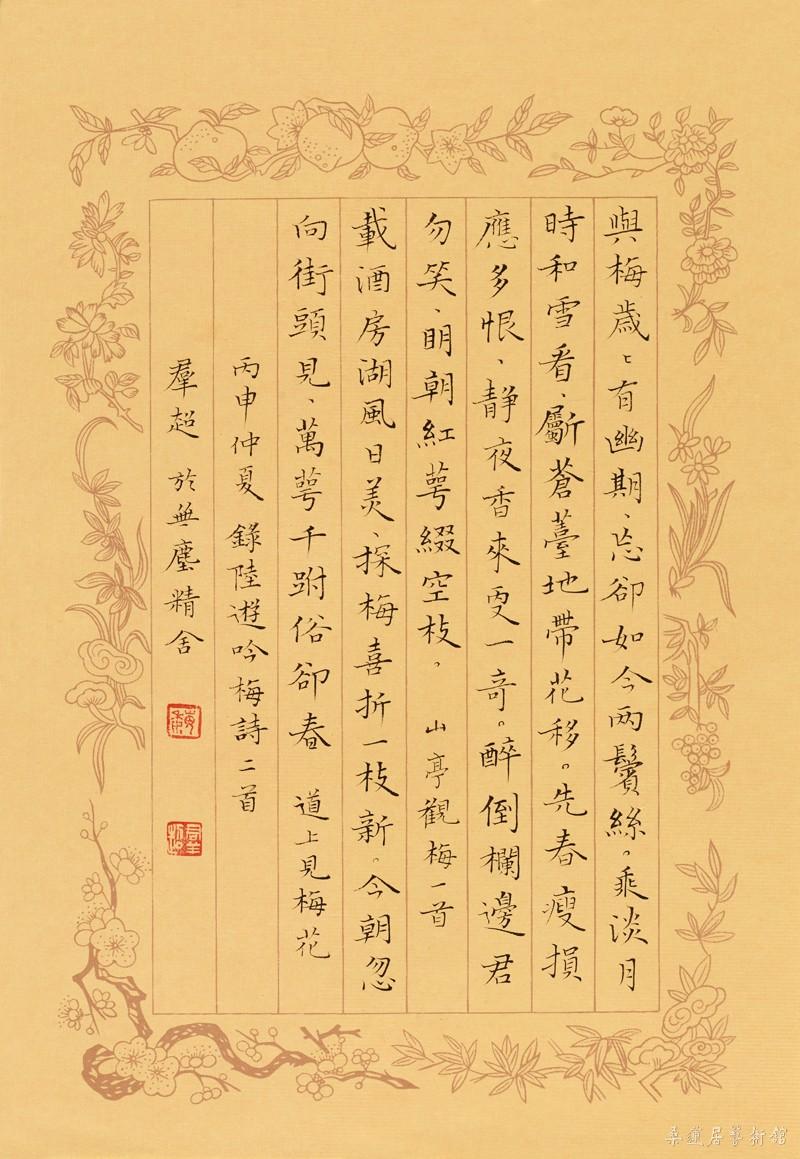 與梅歲〻有幽期、忘卻如今两鬢絲。乘淡月
時和雪看、斸蒼薹地帶花移。先春瘦損
應多恨、静夜香來更一奇。醉倒欄邊君
勿笑、明朝紅萼綴空枝。山亭觀梅一首
載酒房湖風日美、探梅喜折一枝新。今朝忽
向街頭見、萬萼千跗俗卻春 道上見梅花
丙申仲夏錄陸遊吟梅詩二首
羣超於無塵精舍
桑蓮居藝術館